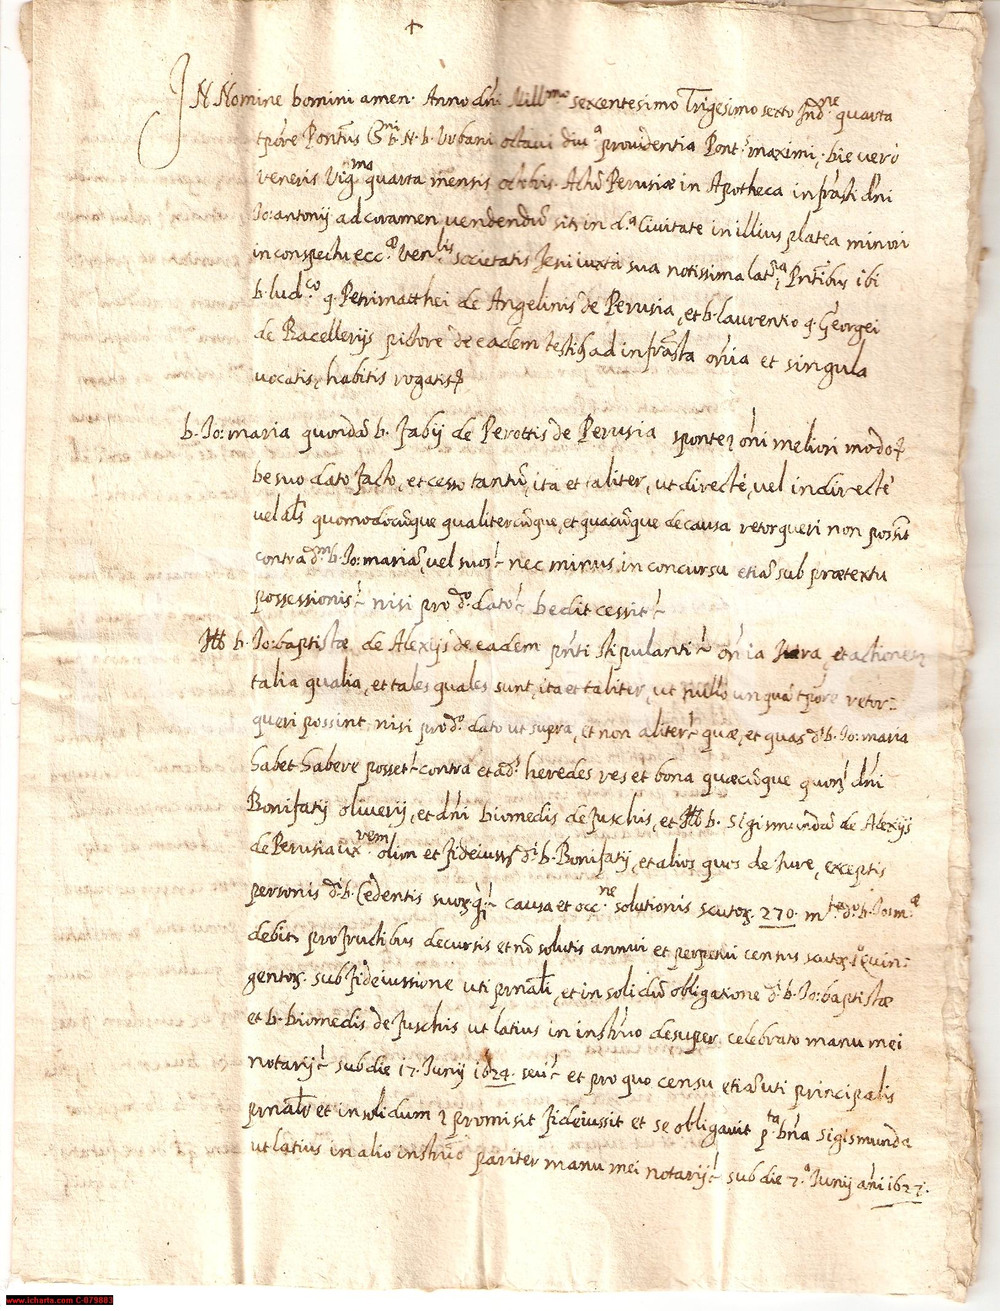 +
IN Nomine Domini amen. Anno dñi Mill.mo sexcentesimo Trigesimo sexto Ind.ne quarta
tpōre Pontus S.mi D. N. D. Urbani octaui diu.a prouidentia Pont.s maximi, Die vero
veneris Vig.ma quarta mensis octbris. Actū Perusiæ in Apotheca infrāsti dñi
Io: antonij ad coramen vendendū sit: in d.a Ciuitate in illius platea minori
in conspectu ecc.æ Ven.lis societatis Jesu iuxta sua notissima lat.ra Pñtibus ibi
D. lud.co q. Petri matthei de Angelinis de Perusia, et D. laurentio q. Georgei
de Bacellerijs pictore de eadem testib. ad infrāsta oñia et singula
vocatis, habitis rogatis
D. Io: maria quondā D. Fabij de Perottis de Perusia sponte, oñi meliori modo
De suo dato facto, et cesso tantū, ita et taliter, ut directè, vel indirectè
vel al's quomodocūque qualitercūque, et quacūque de causa retorqueri non possit
contra d.m D. Io: mariā, vel suos nec minus in concursu etiā sub prætextu
possessionis nisi pro d.o dato Dedit cessit
Ill.i D. Io: baptistæ de Alexijs de eadem pñti stipulanti oñia Jura, et actiones
talia qualia, et tales quales sunt, ita et taliter, ut nullo unquā tpōre retor=
queri possint nisi pro d.o dato ut supra, et non aliter quæ, et quas d.s D. Io: maria
habet habere posset contra et ad.s heredes res et bona quæcūque quon. dñi
Bonifatij oliuerij, et dñi Diomedis de fuschis, et Ill. D. Sigismundā de Alexijs
de Perusia ux.rem olim et fideiuss. d.i D. Bonifatij, et alios ques de Iure, exceptis
personis d.i D. Cedentis suor. causa et occ.ne solutionis scutor. 270. m.ta d.o D. Io: m.æ
debit. pro fructibus decursis et nō solutis annui et perpetui census scutor. Quin=
gentor. sub fideiussione uti prñali, et in solidū obligatione d.i D. Io: baptistæ
et D. Diomedis de fuschis ut latius in instr̄io desuper celebrato manu mei
notarij sub die 17. Junij 1624. seu et pro quo censu etiā uti principalis
prñalr et in solidum promisit fideiussit et se obligauit p.ta Dñā Sigismunda
ut latius in alio instr̄io pariter manu mei notarij sub die 7.a Junij añi 1627.
www.icharta.com C-079883